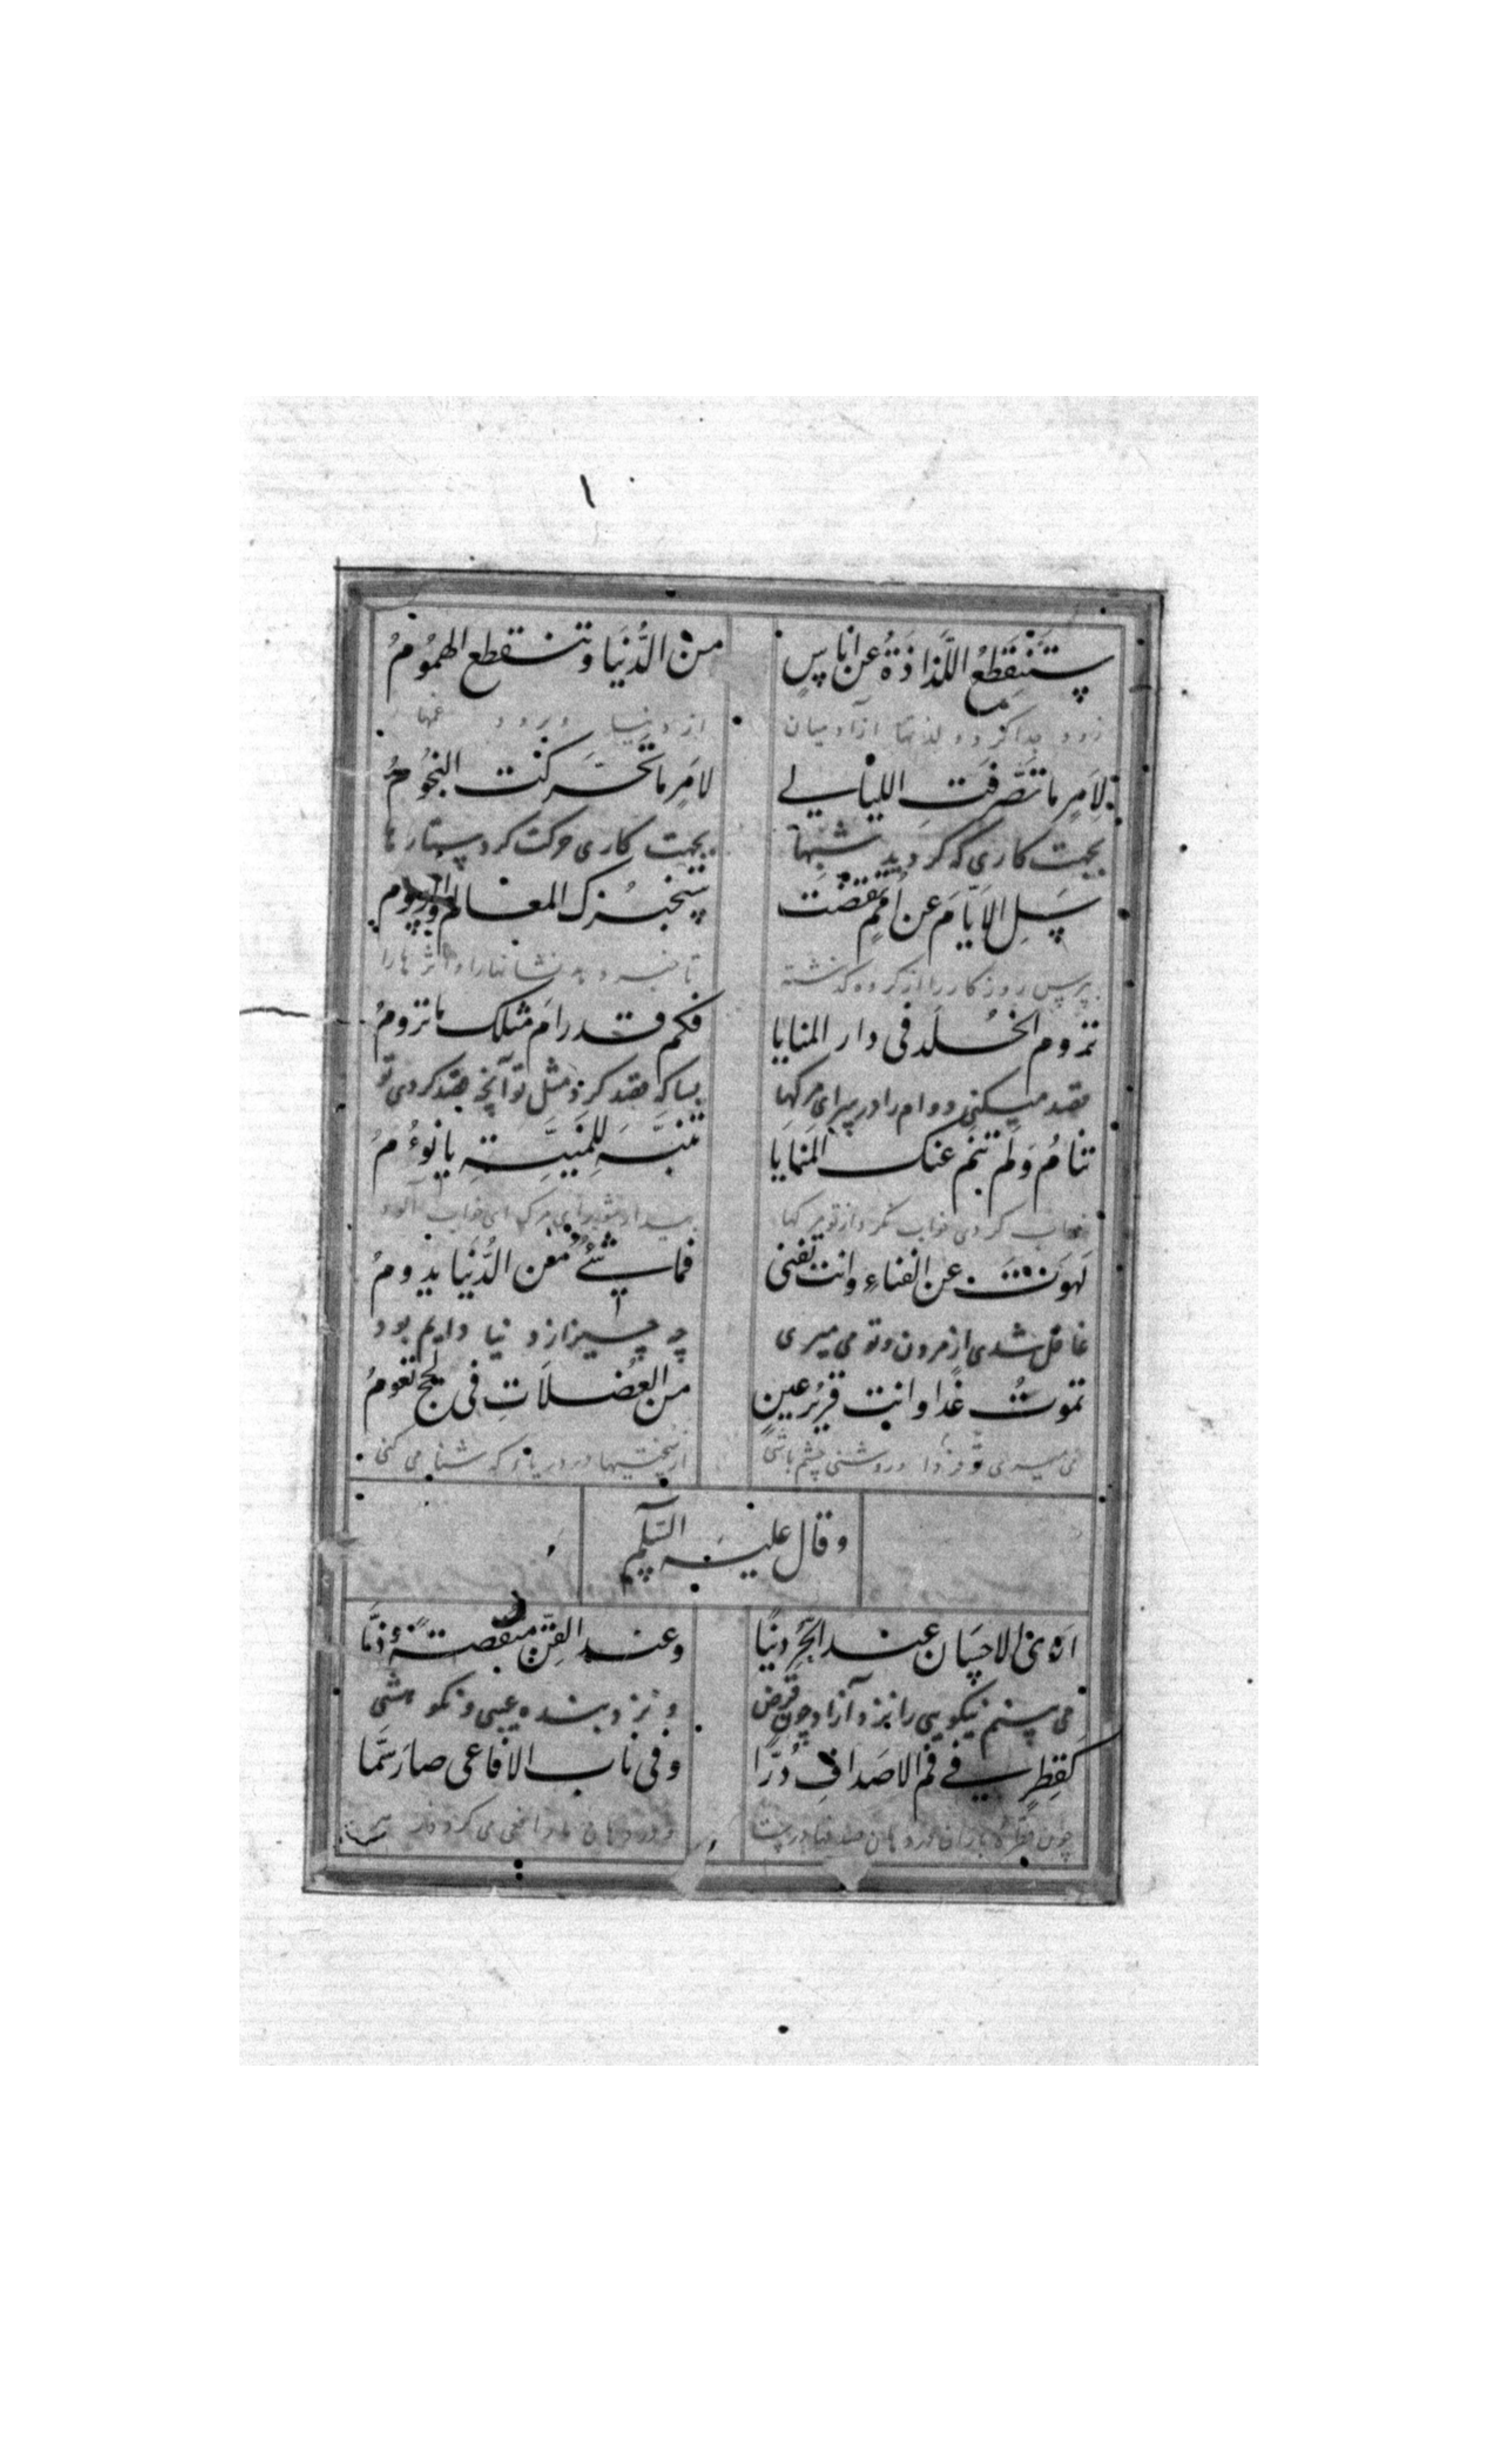 ستنقطع اللذاذة عن اناس من الدُّنيَا وتنقطع الهمُومُ
زود جدا كردد لذتها از آدميان از دنيا غمها
لِاَمرٍ ما تصَرفَت الليالے لامرٍ ما تحَركت النجُومُ
بجهت كارى كه كرديد شبها بجهت كارى حركت كرد ستارها
سَلِ الاَيّامَ عن اُممٍ تقضت ستخبرك المعالم والرسوم
بپرس روزكار را از كروه كذشته تا خبر دهد نشانها را و اثرها را
تروم الخُلد فى دار المنايا فكم قد رامَ مثلك ما ترومُ
قصد ميكنى دوام را در سراى مركها بسا كه قصد كرد مثل تو آنچه قصد كردى تو
تنامُ وَلم تنَم عنك المنايا تنبَّه للمَنِيَّةِ يا نوءُمُ
خواب كردى خواب نكرد از تو مركها بيدار شو براى مرك اى خواب آلود
لهَوتَ عن الفناءِ وانت تفنى فما شئٌ من الدُّنيا يدومُ
غافل شدى از مردن و تو مى ميرى چه چيز از دنيا دايم بود
تموتُ غدًا وانت قريرُ عينٍ من العضلاَتِ فى لجج تعومُ
مى ميرى تو فردا و روشنى چشم باشى از سختيها در دريائى كه شنا مى كنى
وقال عليه السّلم
ارى الاحسَان عند الحُرِّ دينًا وعند القِنّ منقصةً وذمَّا
مى بينم نيكويى را نزد آزاد چون قرض و نزد بنده عيبى و نكوهشى
كقطرٍ فے فم الاصدافِ دُرًّا وفى ناب الافاعى صارَ سَمّا
چون قطره باران در دهان صدفها در است و در دهان مار افعى مى كردد زهر